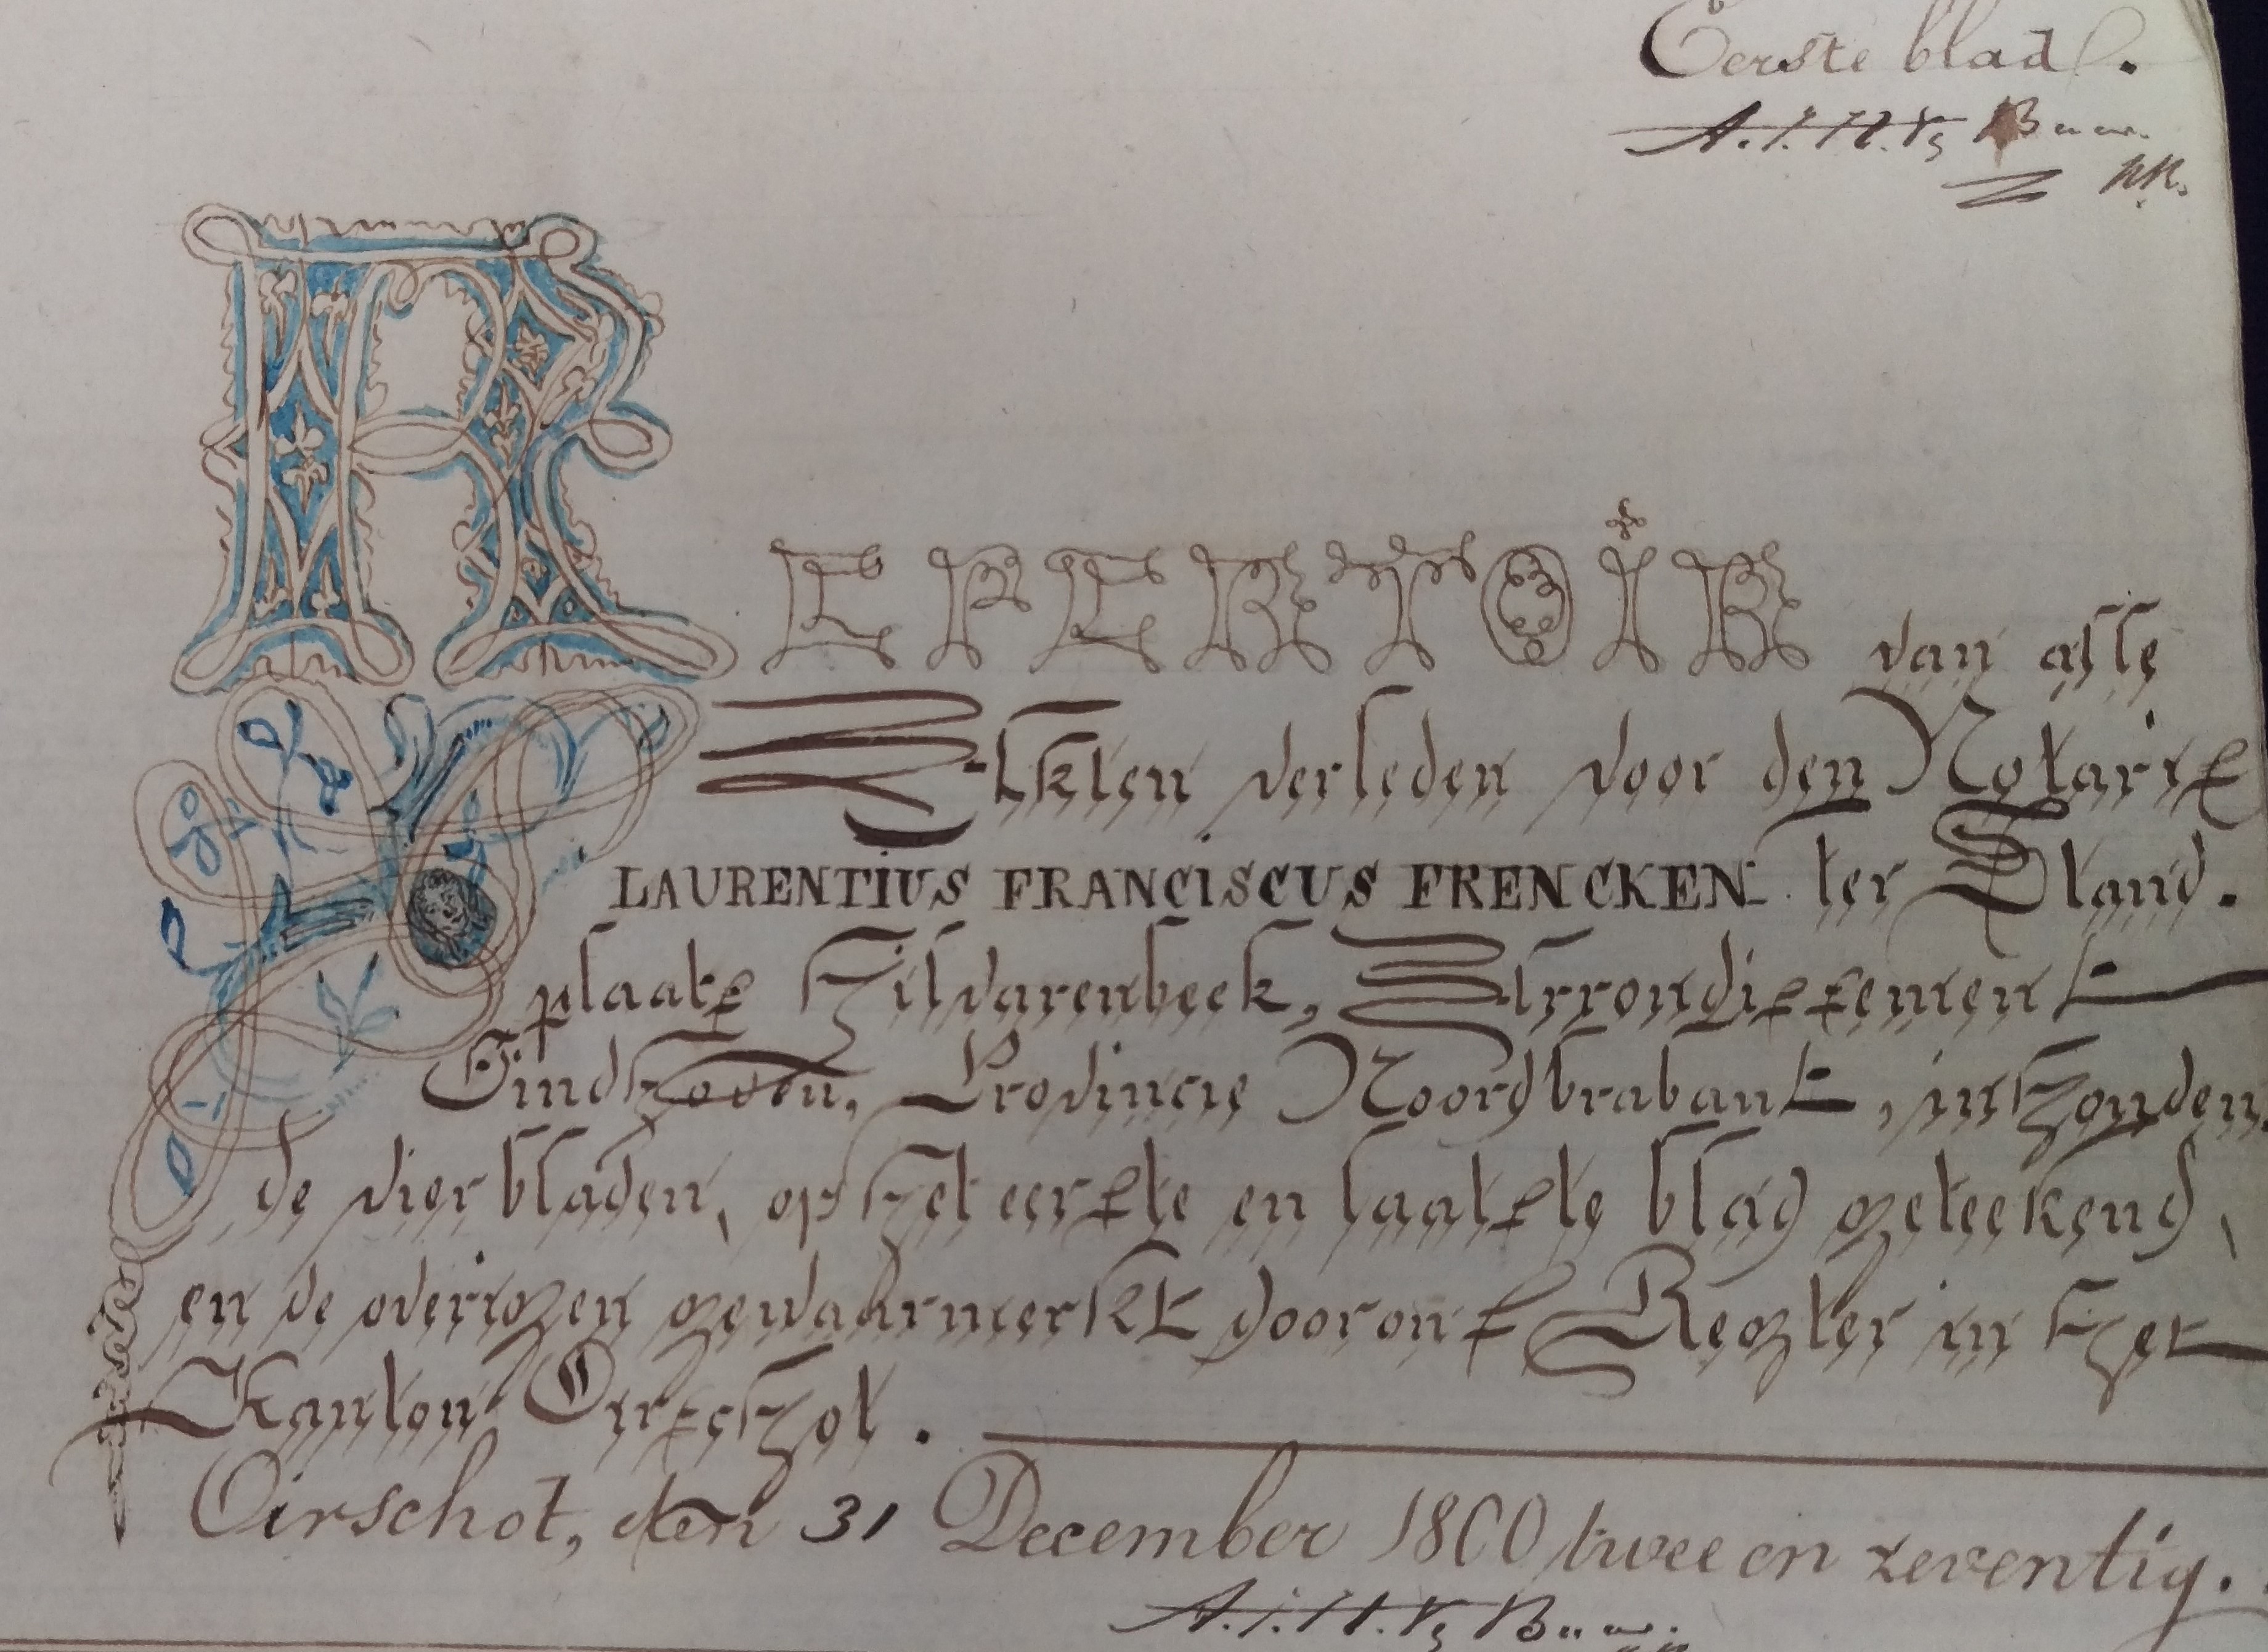 Eerste blad.
REPERTOIR van alle
Akten verleden voor den Notaris
LAURENTIUS FRANCISCUS FRENCKEN ter Stand.
plaats Hilvarenbeek, Arrondissement
Eindhoven, Provincie Noordbrabant, inhouden
de vier bladen, op het eerste en laatste blad geteekend,
en de overigen gewaarmerkt door ons Regter in het
Kanton Oirschot.
Oirschot, den 31 December 1800 twee en zeventig.